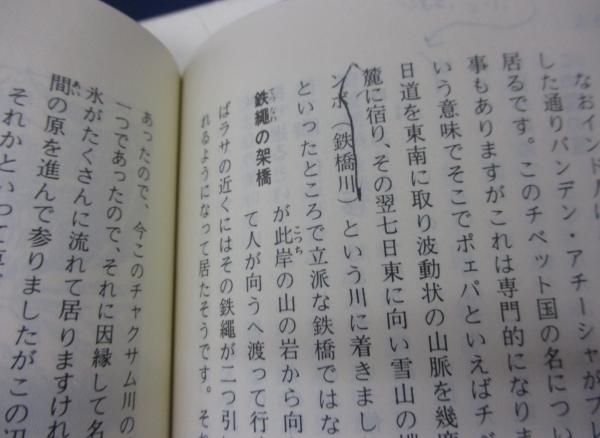 なおインド人は
した通りパンデン・アチーシャがプレ
居るです。このチベット国の名につい
事もありますがこれは専門的になりま
いう意味でそこでポェパといえばチベ
日道を東南に取り波動状の山脈を幾度
麓に宿り、その翌七日東に向い雪山の
ンボ（鉄橋川）という川に着きまし
といったところで立派な鉄橋ではな
鉄繩の架橋
が此岸の山の岩から向
て人が向うへ渡って行
ばラサの近くにはその鉄繩が二つ引
れるようになって居たそうです。それ
あったので、今このチャクサム川の
一つであったので、それに因縁して名
氷がたくさんに流れて居りますけれ
間の原を進んで参りましたがこの辺
それかといって